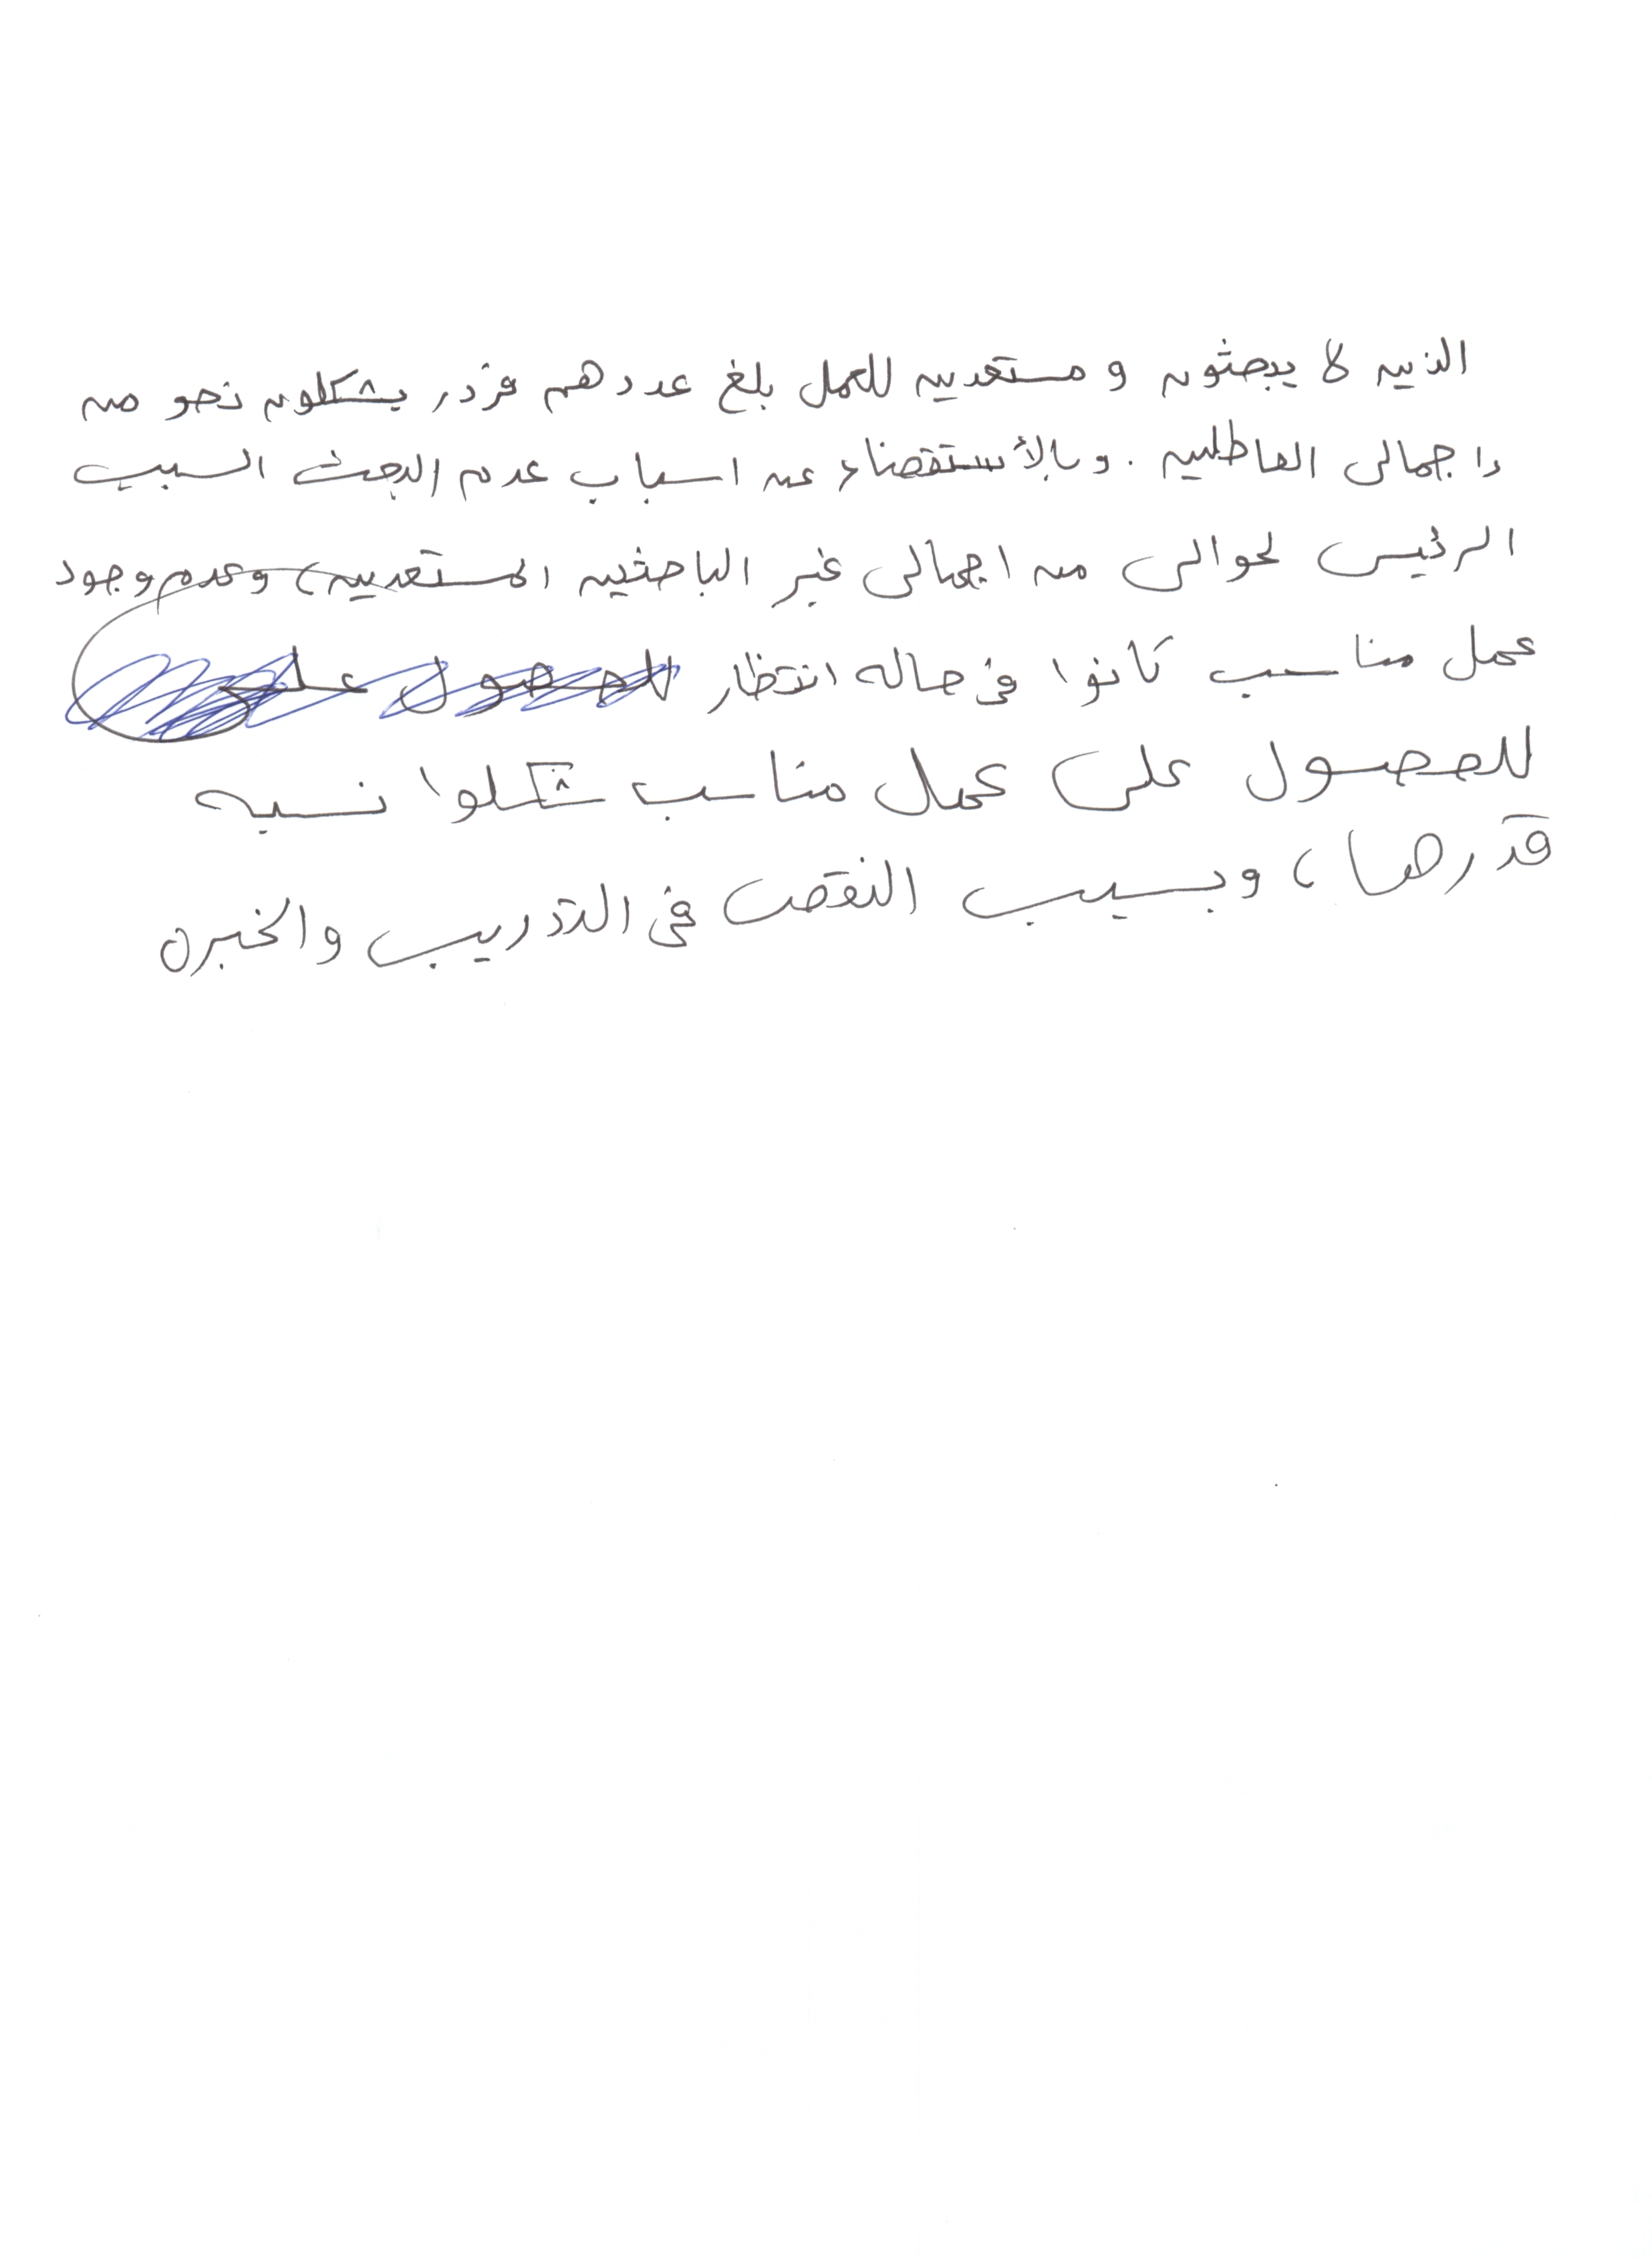 الذين لا يبحثون و مستعدين للعمل بلغ عددهم فرد، يشكلون نحو من
اجمالى العاطلين . وبالأستقصاء عن اسباب عدم البحث السبب
الرئيس لحوالى من اجمالى غير الباحثين المستعدين، وعدم وجود
عمل مناسب كانوا فى حاله انتظار للحصول على
للحصول على عمل مناسب شكلوا نسبه
قدرها، وبسبب النقص فى التدريب والخبره